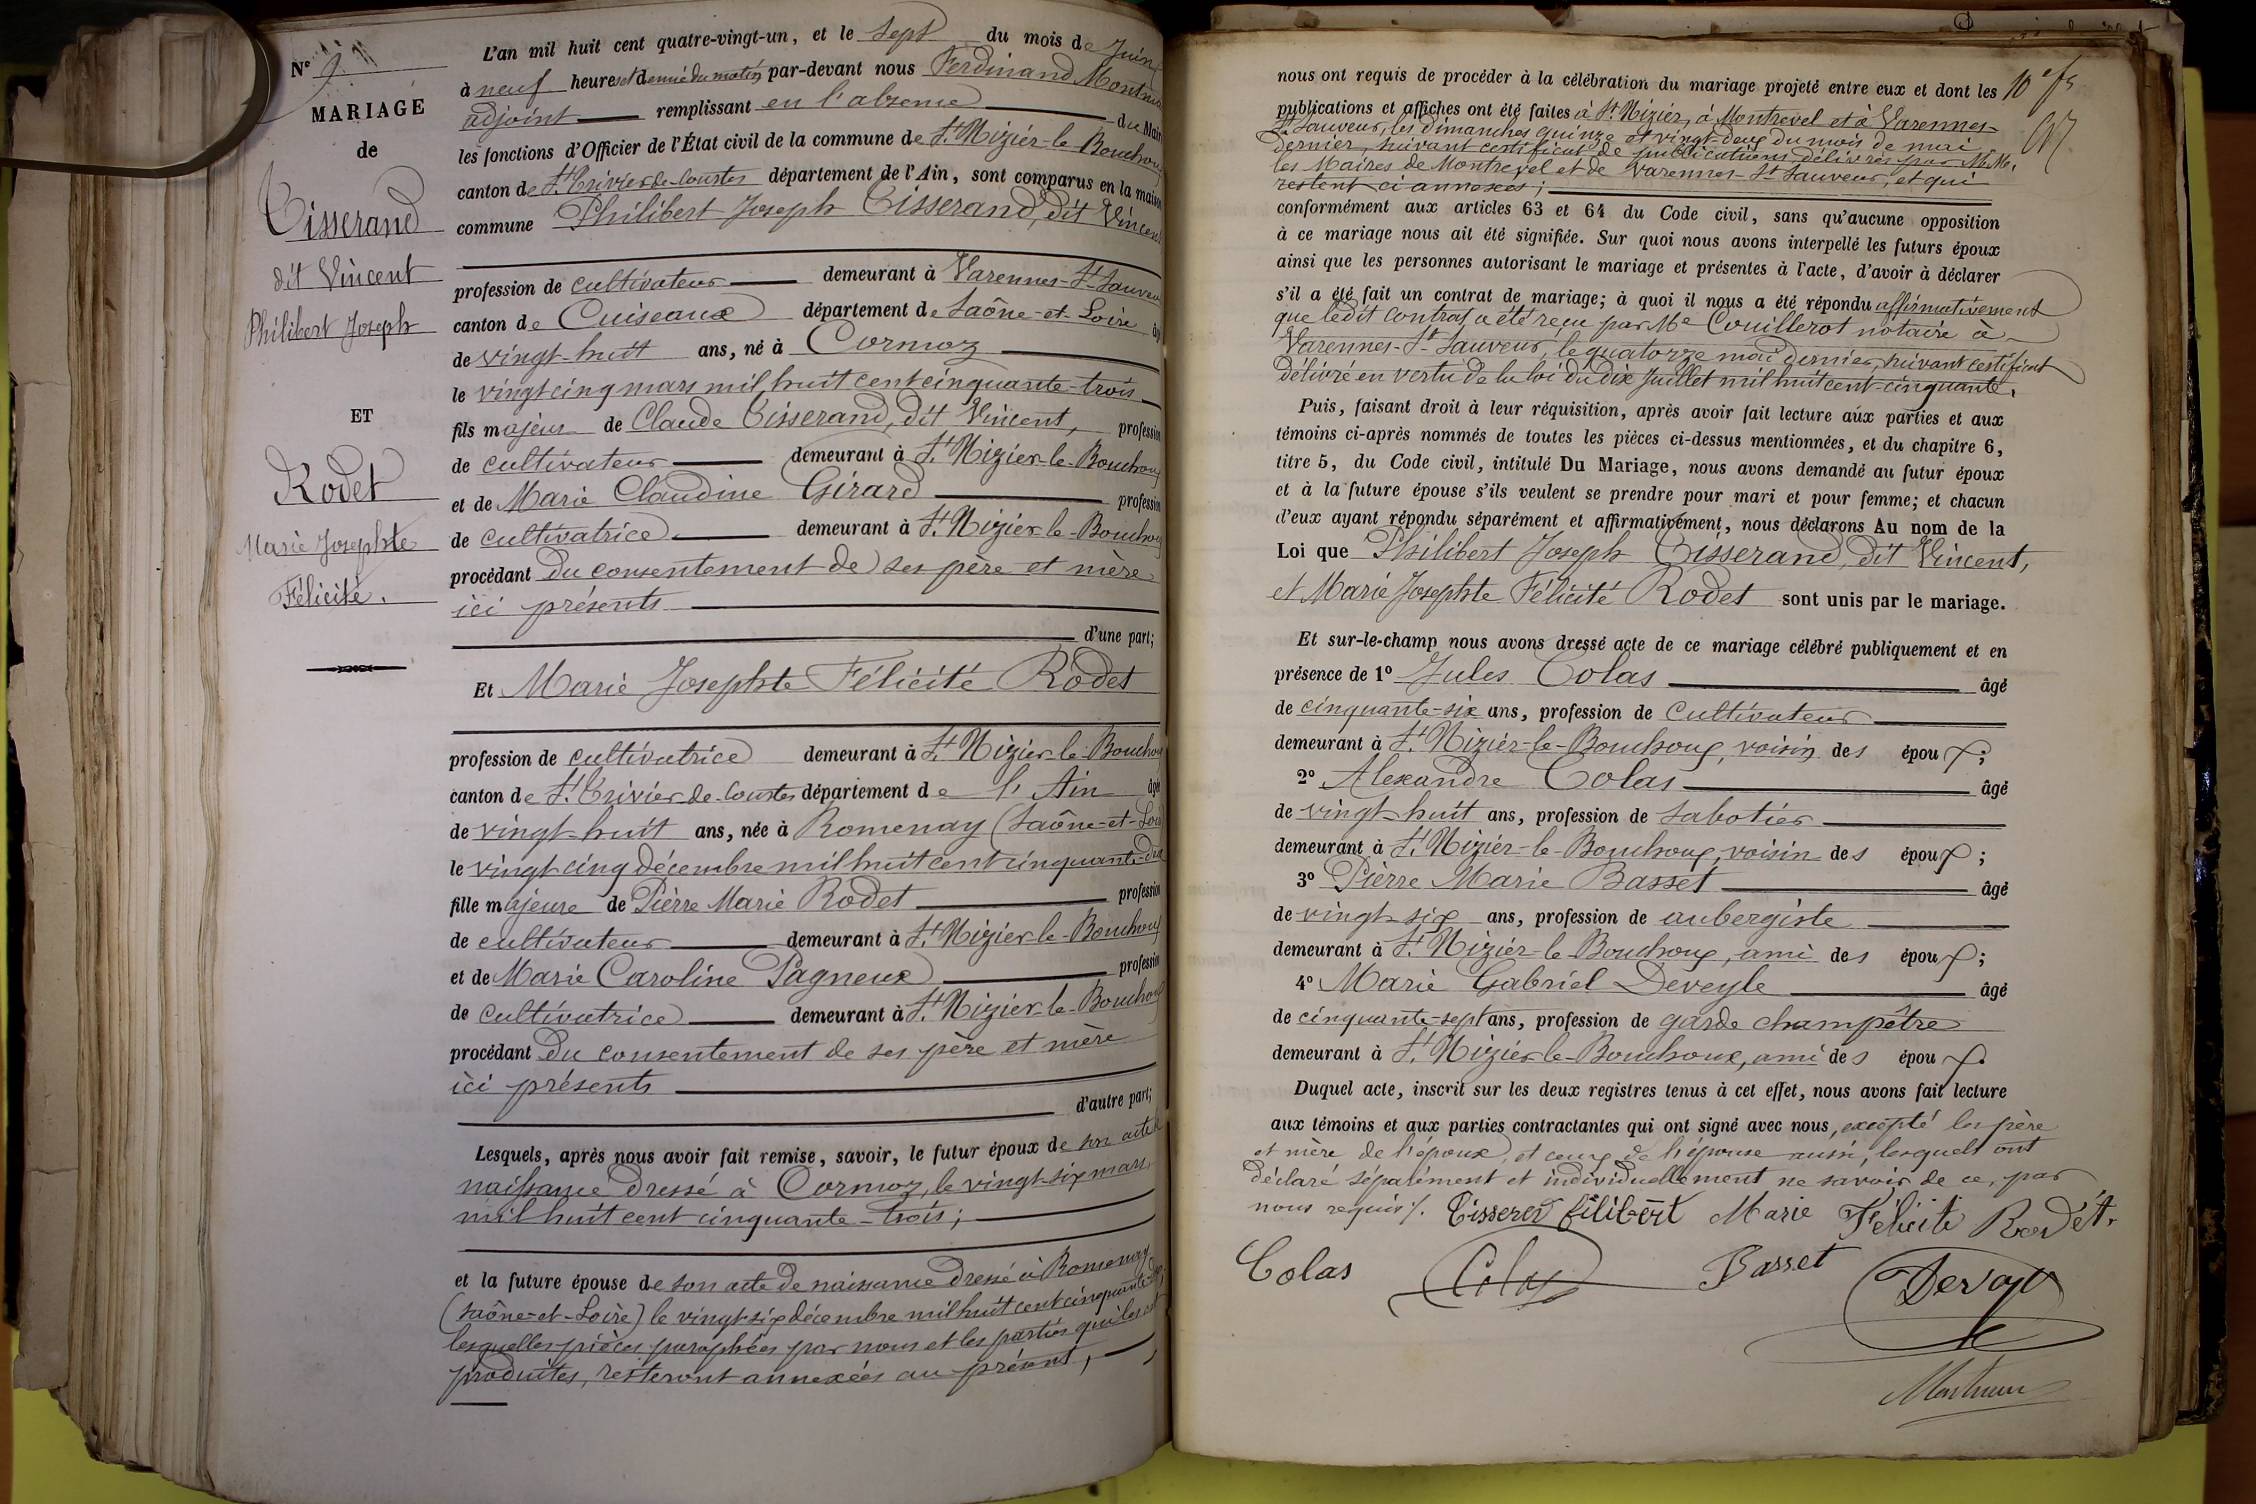 N° 9
MARIAGE
de
Tisserand
dit Vincent
Philibert Joseph
ET
Rodet
Marie Josephte
Félicité.
L'an mil huit cent quatre-vingt-un, et le sept du mois de Juin
à neuf heures et demie du matin par-devant nous Ferdinand
adjoint remplissant en l'absence du Maire
les fonctions d'Officier de l'État civil de la commune de St. Nizier-le-Bouchoux
canton de St. Trivier-de-Courtes département de l'Ain, sont comparus en la maison
commune Philibert Joseph Tisserand, dit Vincent
profession de cultivateur demeurant à Varennes-St-Sauveur
canton de Cuiseaux département de Saône-et-Loire âgé
de vingt-huit ans, né à Cormoz
le vingt cinq mars mil huit cent cinquante-trois
fils majeur de Claude Tisserand, dit Vincent, profession
de cultivateur demeurant à St. Nizier-le-Bouchoux
et de Marie Claudine Girard profession
de cultivatrice demeurant à St. Nizier-le-Bouchoux
procédant du consentement de ses père et mère
ici présents
d'une part;
Et Marie Josephte Félicité Rodet
profession de cultivatrice demeurant à St. Nizier-le-Bouchoux
canton de St. Trivier-de-Courtes département de l'Ain âgée
de vingt-huit ans, née à Romenay (Saône-et-Loire
le vingt-cinq décembre mil huit cent cinquante-deux
fille majeure de Pierre Marie Rodet profession
de cultivateur demeurant à St. Nizier-le-Bouchoux
et de Marie Caroline Pagneux profession
de cultivatrice demeurant à St. Nizier-le-Bouchoux
procédant du consentement de ses père et mère
ici présents
d'autre part;
Lesquels, après nous avoir fait remise, savoir, le futur époux de son acte de
naissance dressé à Cormoz, le vingt-six mars
mil huit cent cinquante-trois;
et la future épouse de son acte de naissance dressé à Romenay
(Saône-et-Loire) le vingt-six décembre mil huit cent cinquante-deux;
lesquelles pièces paraphées par nous et les parties qui les ont
produites, resteront annexées au présent,
nous ont requis de procéder à la célébration du mariage projeté entre eux et dont les
publications et affiches ont été faites à St. Nizier, à Montrevel et à Varennes-
St. Sauveur, les dimanches quinze et vingt-deux du mois de mai
dernier, suivant certificat de publications délivrés par M.M.
les Maires de Montrevel et de Varennes-St-Sauveur, et qui
restent ci annexées;
conformément aux articles 63 et 64 du Code civil, sans qu'aucune opposition
à ce mariage nous ait été signifiée. Sur quoi nous avons interpellé les futurs époux
ainsi que les personnes autorisant le mariage et présentes à l'acte, d'avoir à déclarer
s'il a été fait un contrat de mariage; à quoi il nous a été répondu affirmativement
que ledit contrat a été reçu par Me Couillerot notaire à
Varennes-St-Sauveur, le quatorze mai dernier, suivant certificat
délivré en vertu de la loi du dix Juillet mil huit cent-cinquante.
Puis, faisant droit à leur réquisition, après avoir fait lecture aux parties et aux
témoins ci-après nommés de toutes les pièces ci-dessus mentionnées, et du chapitre 6,
titre 5, du Code civil, intitulé Du Mariage, nous avons demandé au futur époux
et à la future épouse s'ils veulent se prendre pour mari et pour femme; et chacun
d'eux ayant répondu séparément et affirmativement, nous déclarons Au nom de la
Loi que Philibert Joseph Tisserand, dit Vincent,
et Marie Josephte Félicité Rodet sont unis par le mariage.
Et sur-le-champ nous avons dressé acte de ce mariage célébré publiquement et en
présence de 1° Jules Colas âgé
de cinquante-six ans, profession de cultivateur
demeurant à St. Nizier-le-Bouchoux, voisin des époux;
2° Alexandre Colas âgé
de vingt-huit ans, profession de sabotier
demeurant à St. Nizier-le-Bouchoux, voisin des époux;
3° Pierre Marie Basset âgé
de vingt-six ans, profession de aubergiste
demeurant à St. Nizier-le-Bouchoux, ami des époux;
4° Marie Gabriel Deveyle âgé
de cinquante-sept ans, profession de garde champêtre
demeurant à St. Nizier-le-Bouchoux, ami des époux.
Duquel acte, inscrit sur les deux registres tenus à cet effet, nous avons fait lecture
aux témoins et aux parties contractantes qui ont signé avec nous, excepté les père
et mère de l'époux, et ceux de l'épouse aussi, lesquels ont
déclaré séparément et individuellement ne savoir de ce, par
nous requis.
Tisserand filibert Marie Félicité Rodét.
Colas Colas Basset